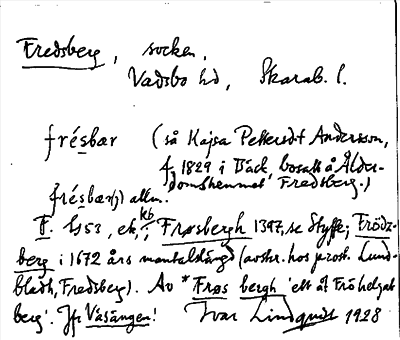 Fredsberg, socken,
Vadsbo hd, Skarab. l.
frésbær (så Kajsa Pettersdt Andersson,
f. 1829 i Bäck, bosatt å Ålder-
domshemmet Fredsberg.)
frésbær(j) allm.
kb
Frøsbergh 1397, se Styffe; Frödz-
berg i 1672 års mantalslängd (avskr. hos prost. Lund-
bladh, Fredsberg). Av *Frøs bergh 'ett åt Frö helgat
berg'. Jfr Vasängen! Ivar Lindquist 1928